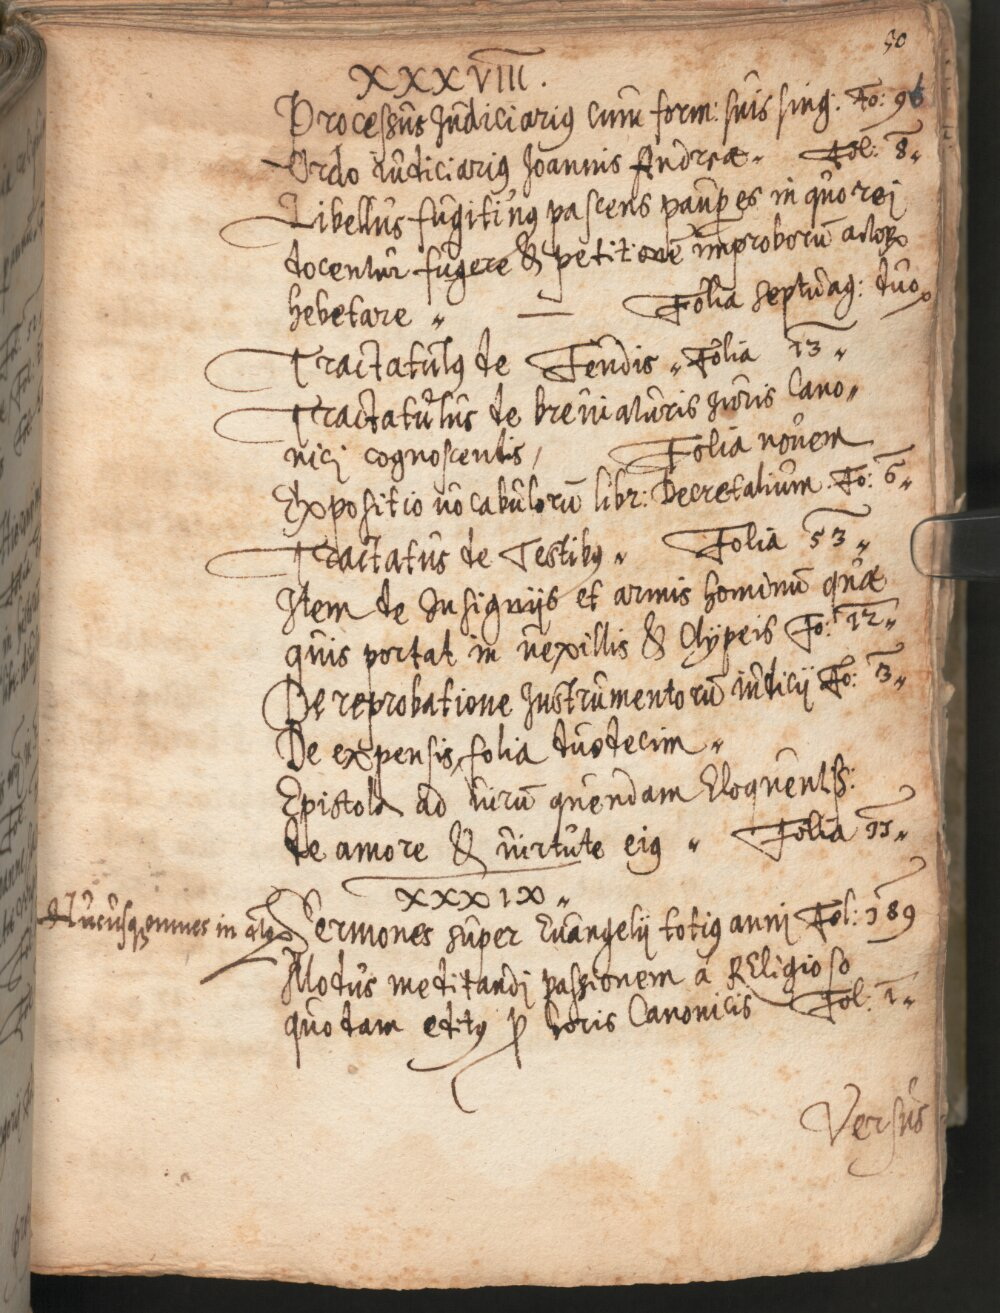 50
XXXVIII.
Processus Iudiciarius cum form: suis sing: Fo: 96
Ordo iudiciarius Joannis Andreæ„ Fol: 8„
Libellus fugitiuus pascens pauperes in quo rei
docentur fugere & petitionē improborū actorū
hebetare„ — Folia septuag: duo
Tractatulus de Feudis„ Folia 13„
Tractatulus de breuiaturis iuris Cano„
nici cognoscentis, Folia nouem
Expositio uocabulorū libr: Decretalium. Fo: 6„
Tractatus de Testibus„ Folia 53„
Item de Insignijs et armis hominū quæ
quis portat in uexillis & Clypeis Fo: 12„
De reprobatione Instrumentorū iudicij Fo: 3„
De expensis, folia duodecim„
Epistola ad uirū quendam Eloquentiß:
de amore & uirtute eius„ Folia 11„
XXXIX„
Hucusq; omnes in
Sermones super Euangelij totius anni Fol: 189
Modus meditandj passionem a Religioso
quodam editus p horis Canonicis Fol: 1„
Versus